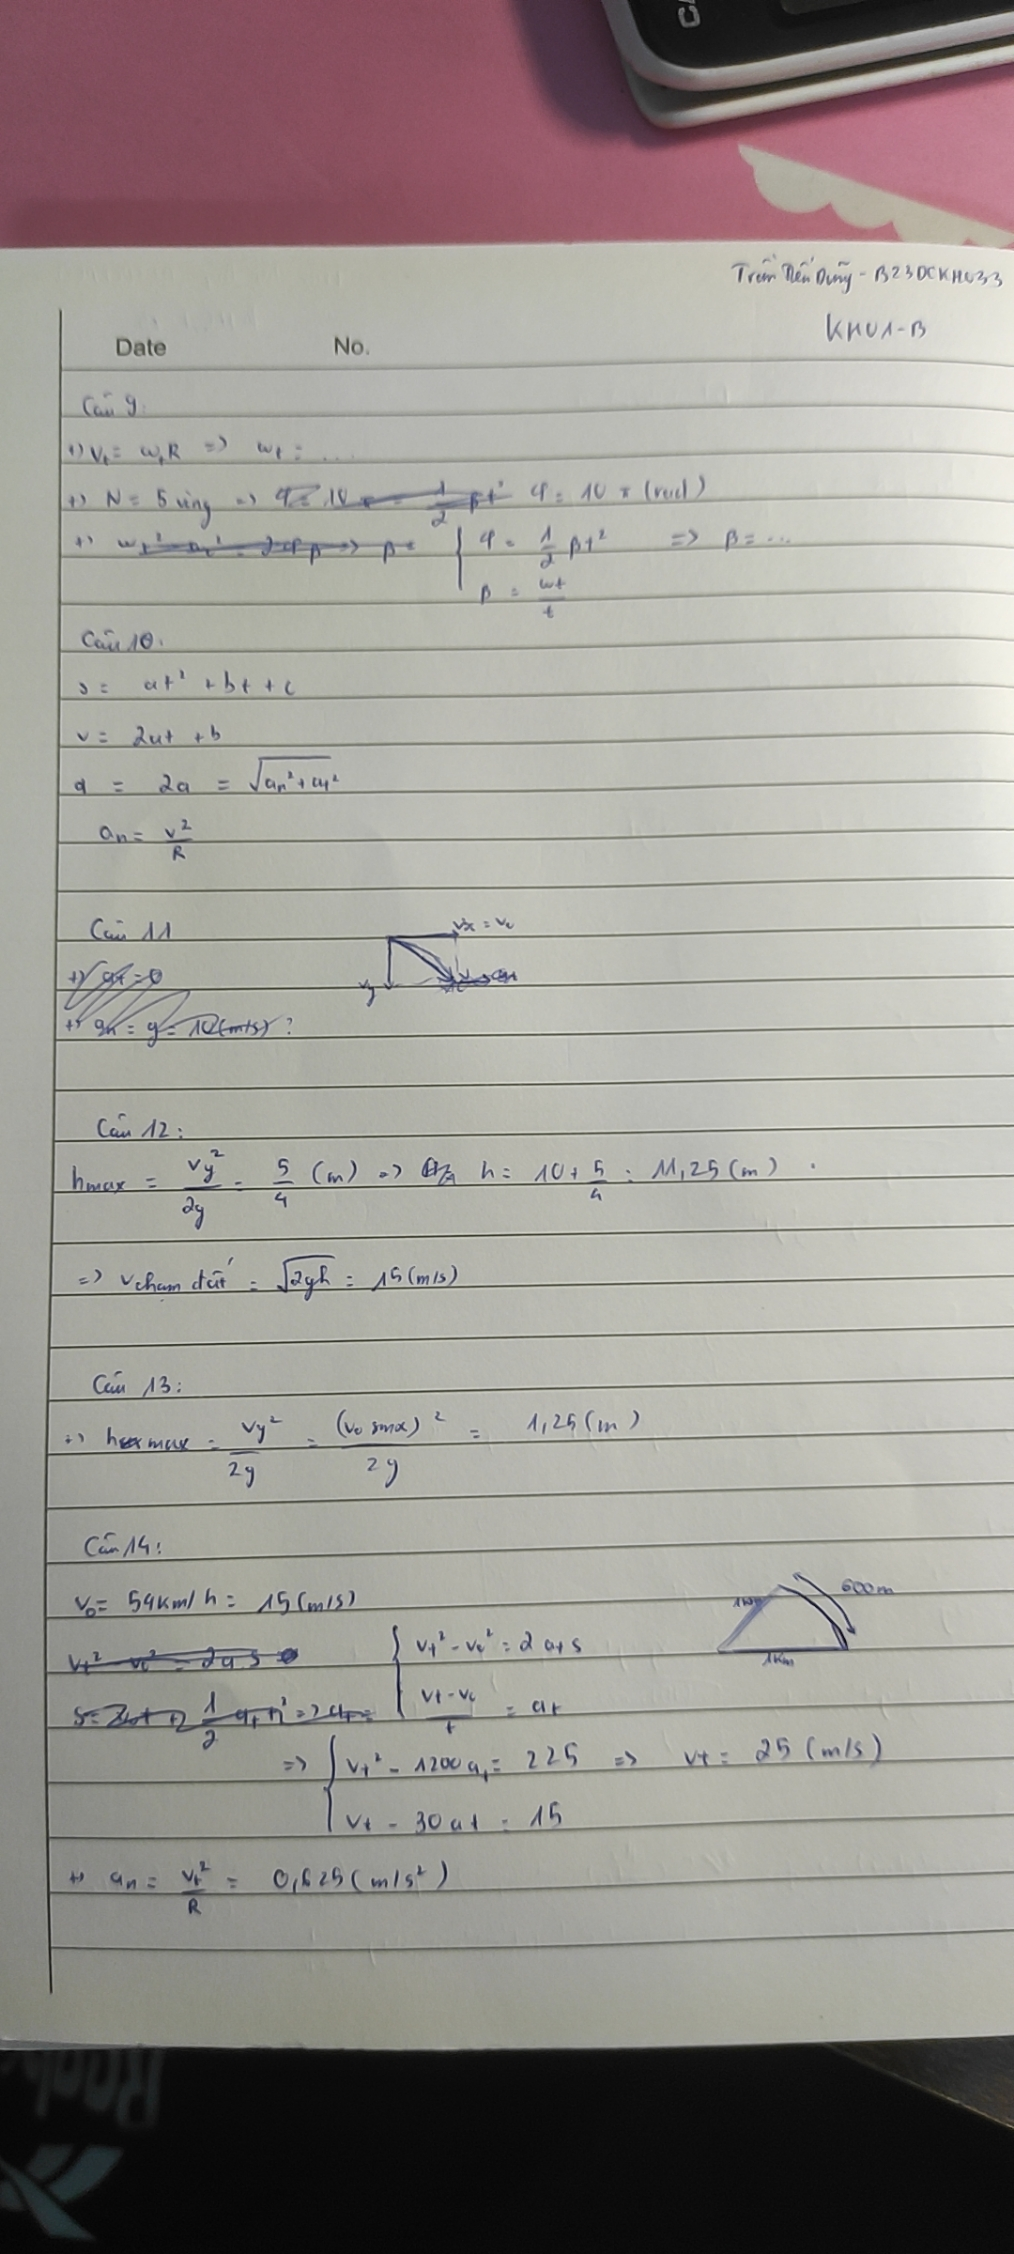 Trần Tiến Dũng - B23DCKH033
KH01-B
Date No.
Câu 9:
+) Vt = ωtR => ωt = ...
+) N = 5 vòng => φ = 10π (rad)
+) φ = 1/2 βt² => β = ...
β = ωt/t
Câu 10:
s = at² + bt + c
v = 2at + b
a = 2a = √(an² + at²)
an = v²/R
Câu 11
Vx = V0
Vy
+) at = 0
+) an = g = 10(m/s)?
Câu 12:
hmax = Vy²/2g = 5/4 (m) => h = 10 + 5/4 = 11,25 (m)
=> Vchạm đất = √2gh = 15 (m/s)
Câu 13:
=> hmax = Vy²/2g = (V0 sinα)²/2g = 1,25 (m)
Câu 14:
V0 = 54km/h = 15 (m/s)
600m
1km
1km
Vt² - V0² = 2 at s
Vt - V0/t = at
=> Vt² - 1200at = 225 => Vt = 25 (m/s)
Vt - 30at = 15
+) an = Vt²/R = 0,625 (m/s²)